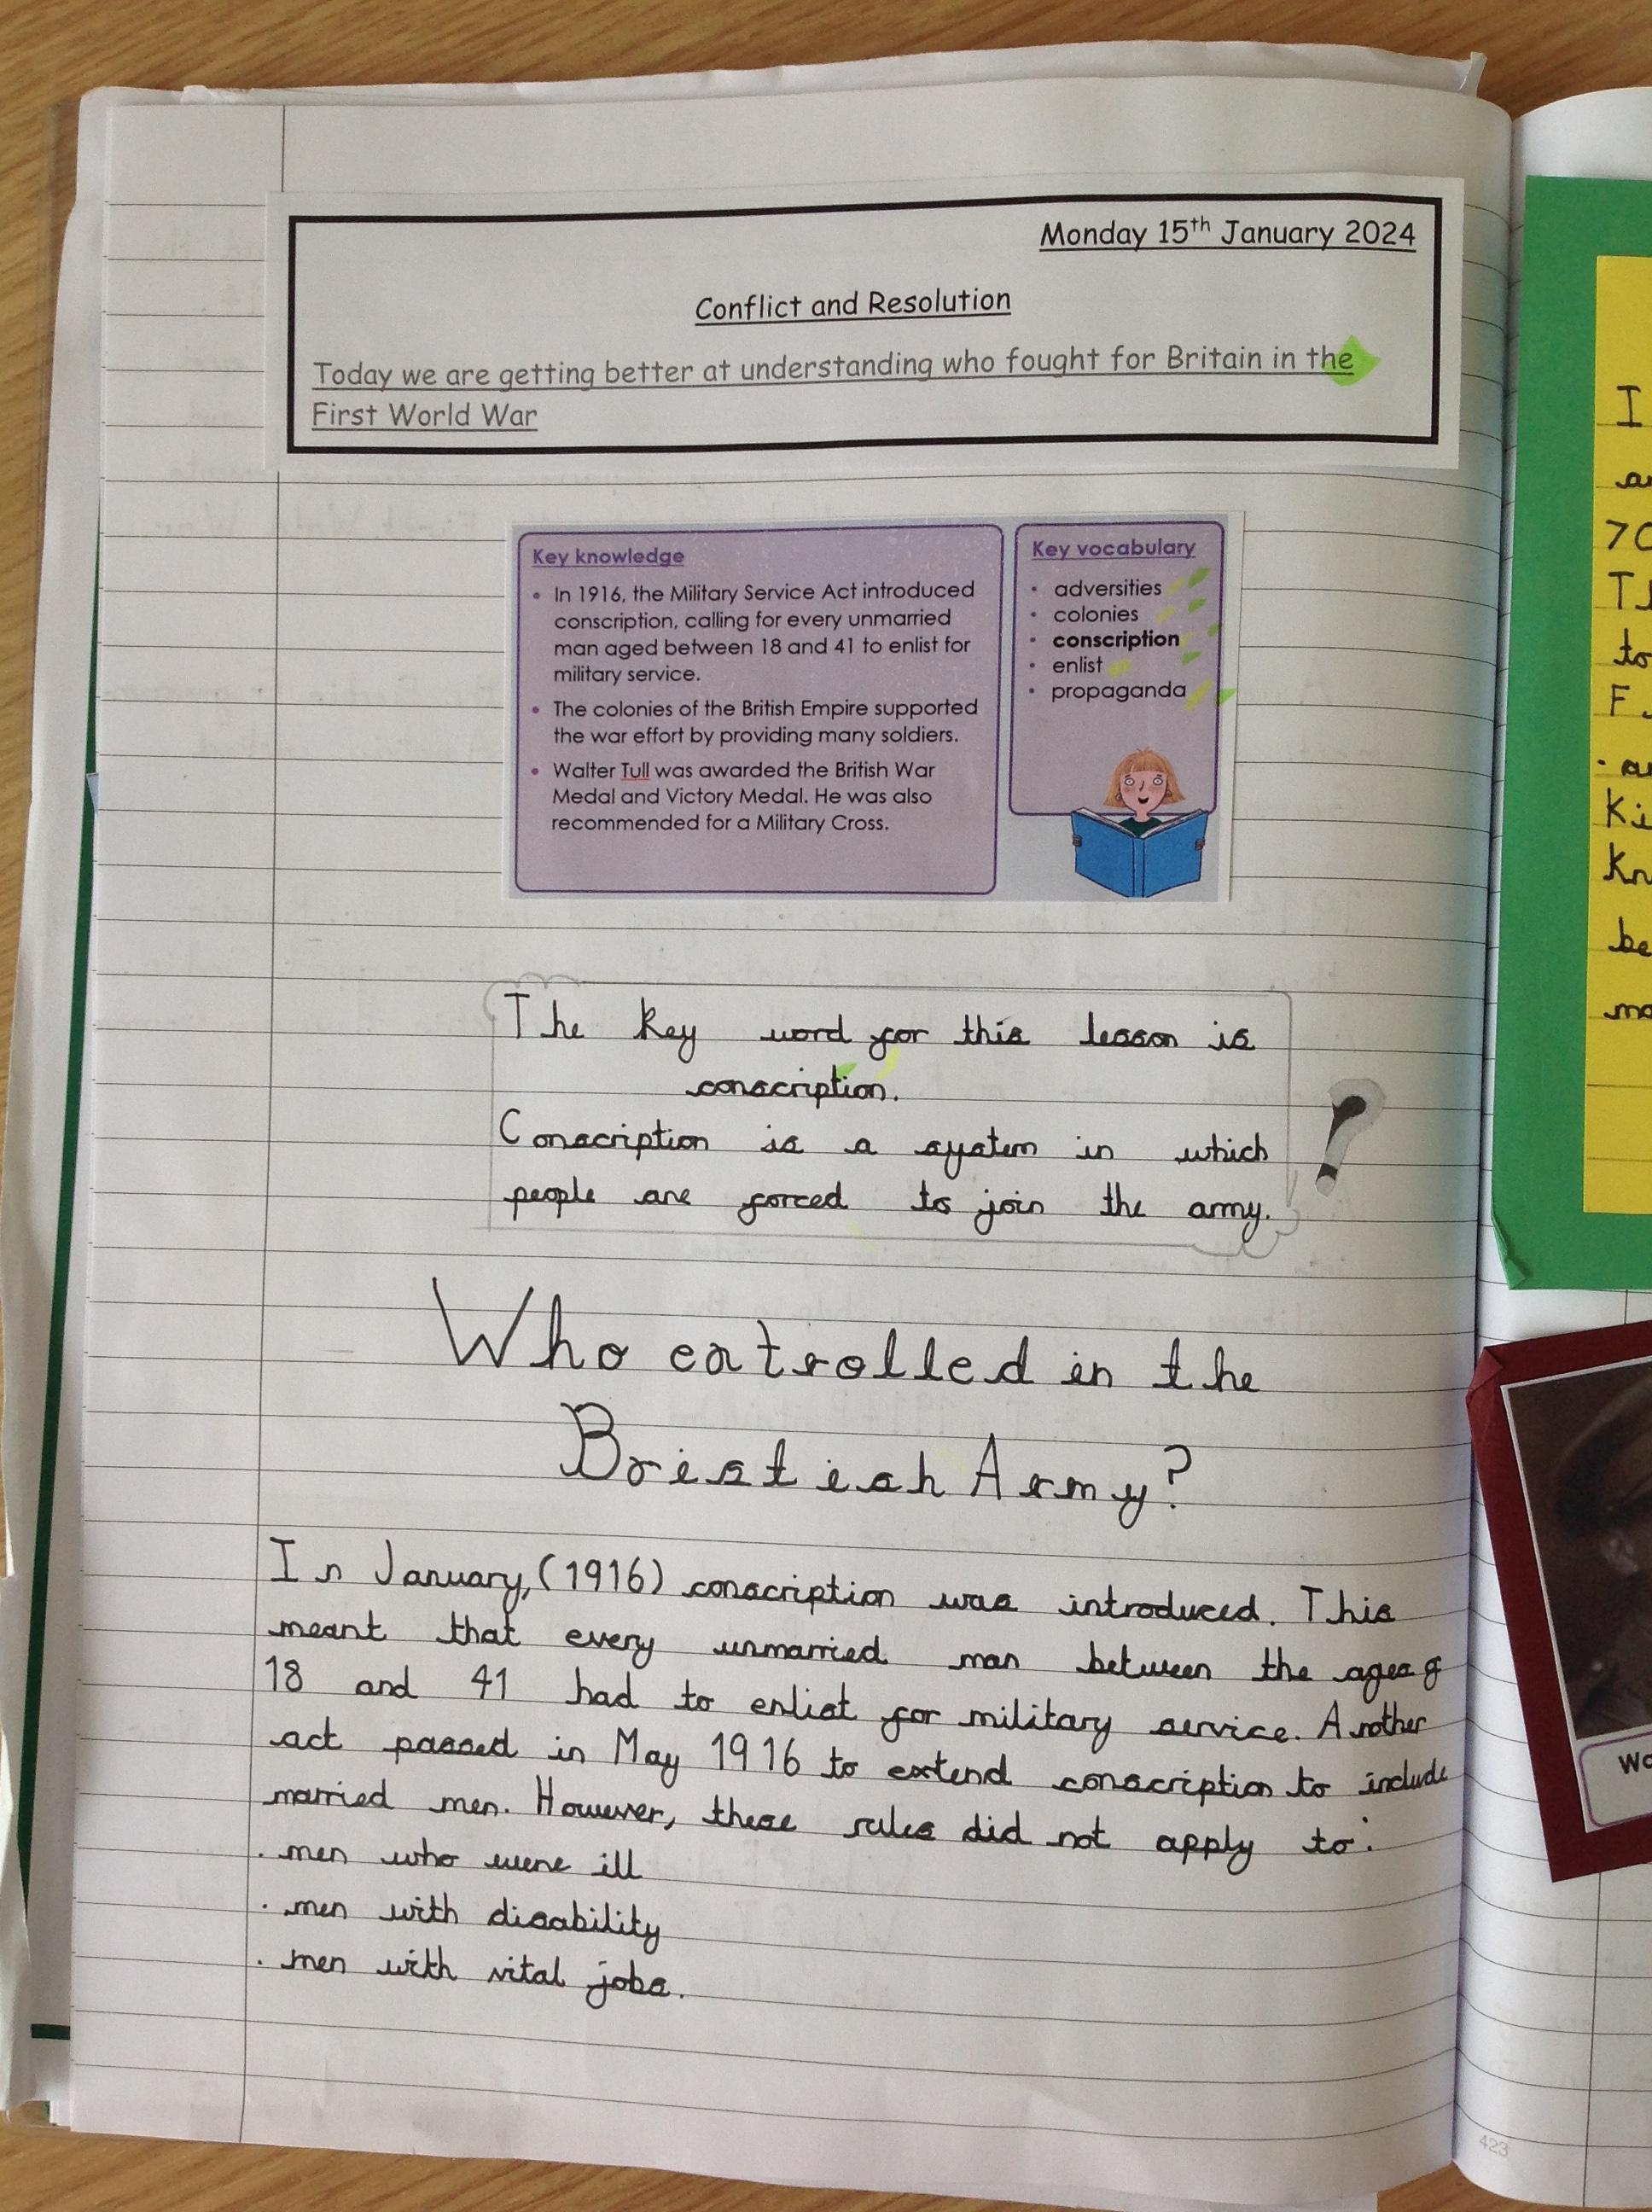 Monday 15th January 2024
Conflict and Resolution
Today we are getting better at understanding who fought for Britain in the
First World War
Key knowledge
• In 1916, the Military Service Act introduced
conscription, calling for every unmarried
man aged between 18 and 41 to enlist for
military service.
• The colonies of the British Empire supported
the war effort by providing many soldiers.
• Walter Tull was awarded the British War
Medal and Victory Medal. He was also
recommended for a Military Cross.
Key vocabulary
• adversities
• colonies
• conscription
• enlist
• propaganda
The key word for this lesson is
conscription.
Conscription is a system in which
people are forced to join the army.
?
Who entrolled in the
Bristish Army?
In January, (1916) conscription was introduced. This
meant that every unmarried man between the ages of
18 and 41 had to enlist for military service. Another
act passed in May 1916 to extend conscription to include
married men. However, these rules did not apply to:
. men who were ill
. men with disability
. men with vital jobs.
I
70
to
F
Ki
Kn
be
mo
Wa
423